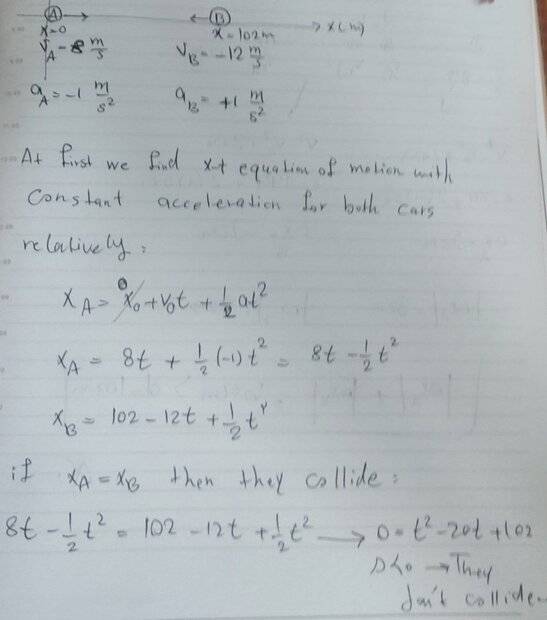 A B
x=0 x=102m x(m)
V_A=8 m/s V_B=-12 m/s
a_A=-1 m/s² a_B=+1 m/s²
At first we find x-t equation of motion with
Constant acceleration for both cars
relatively:
x_A = x₀ + v₀t + ½at²
0
x_A = 8t + ½(-1)t² = 8t - ½t²
x_B = 102 - 12t + ½t²
if x_A = x_B then they collide:
8t - ½t² = 102 - 12t + ½t² → 0 = t² - 20t + 102
Δ<0 → They
don't collide.